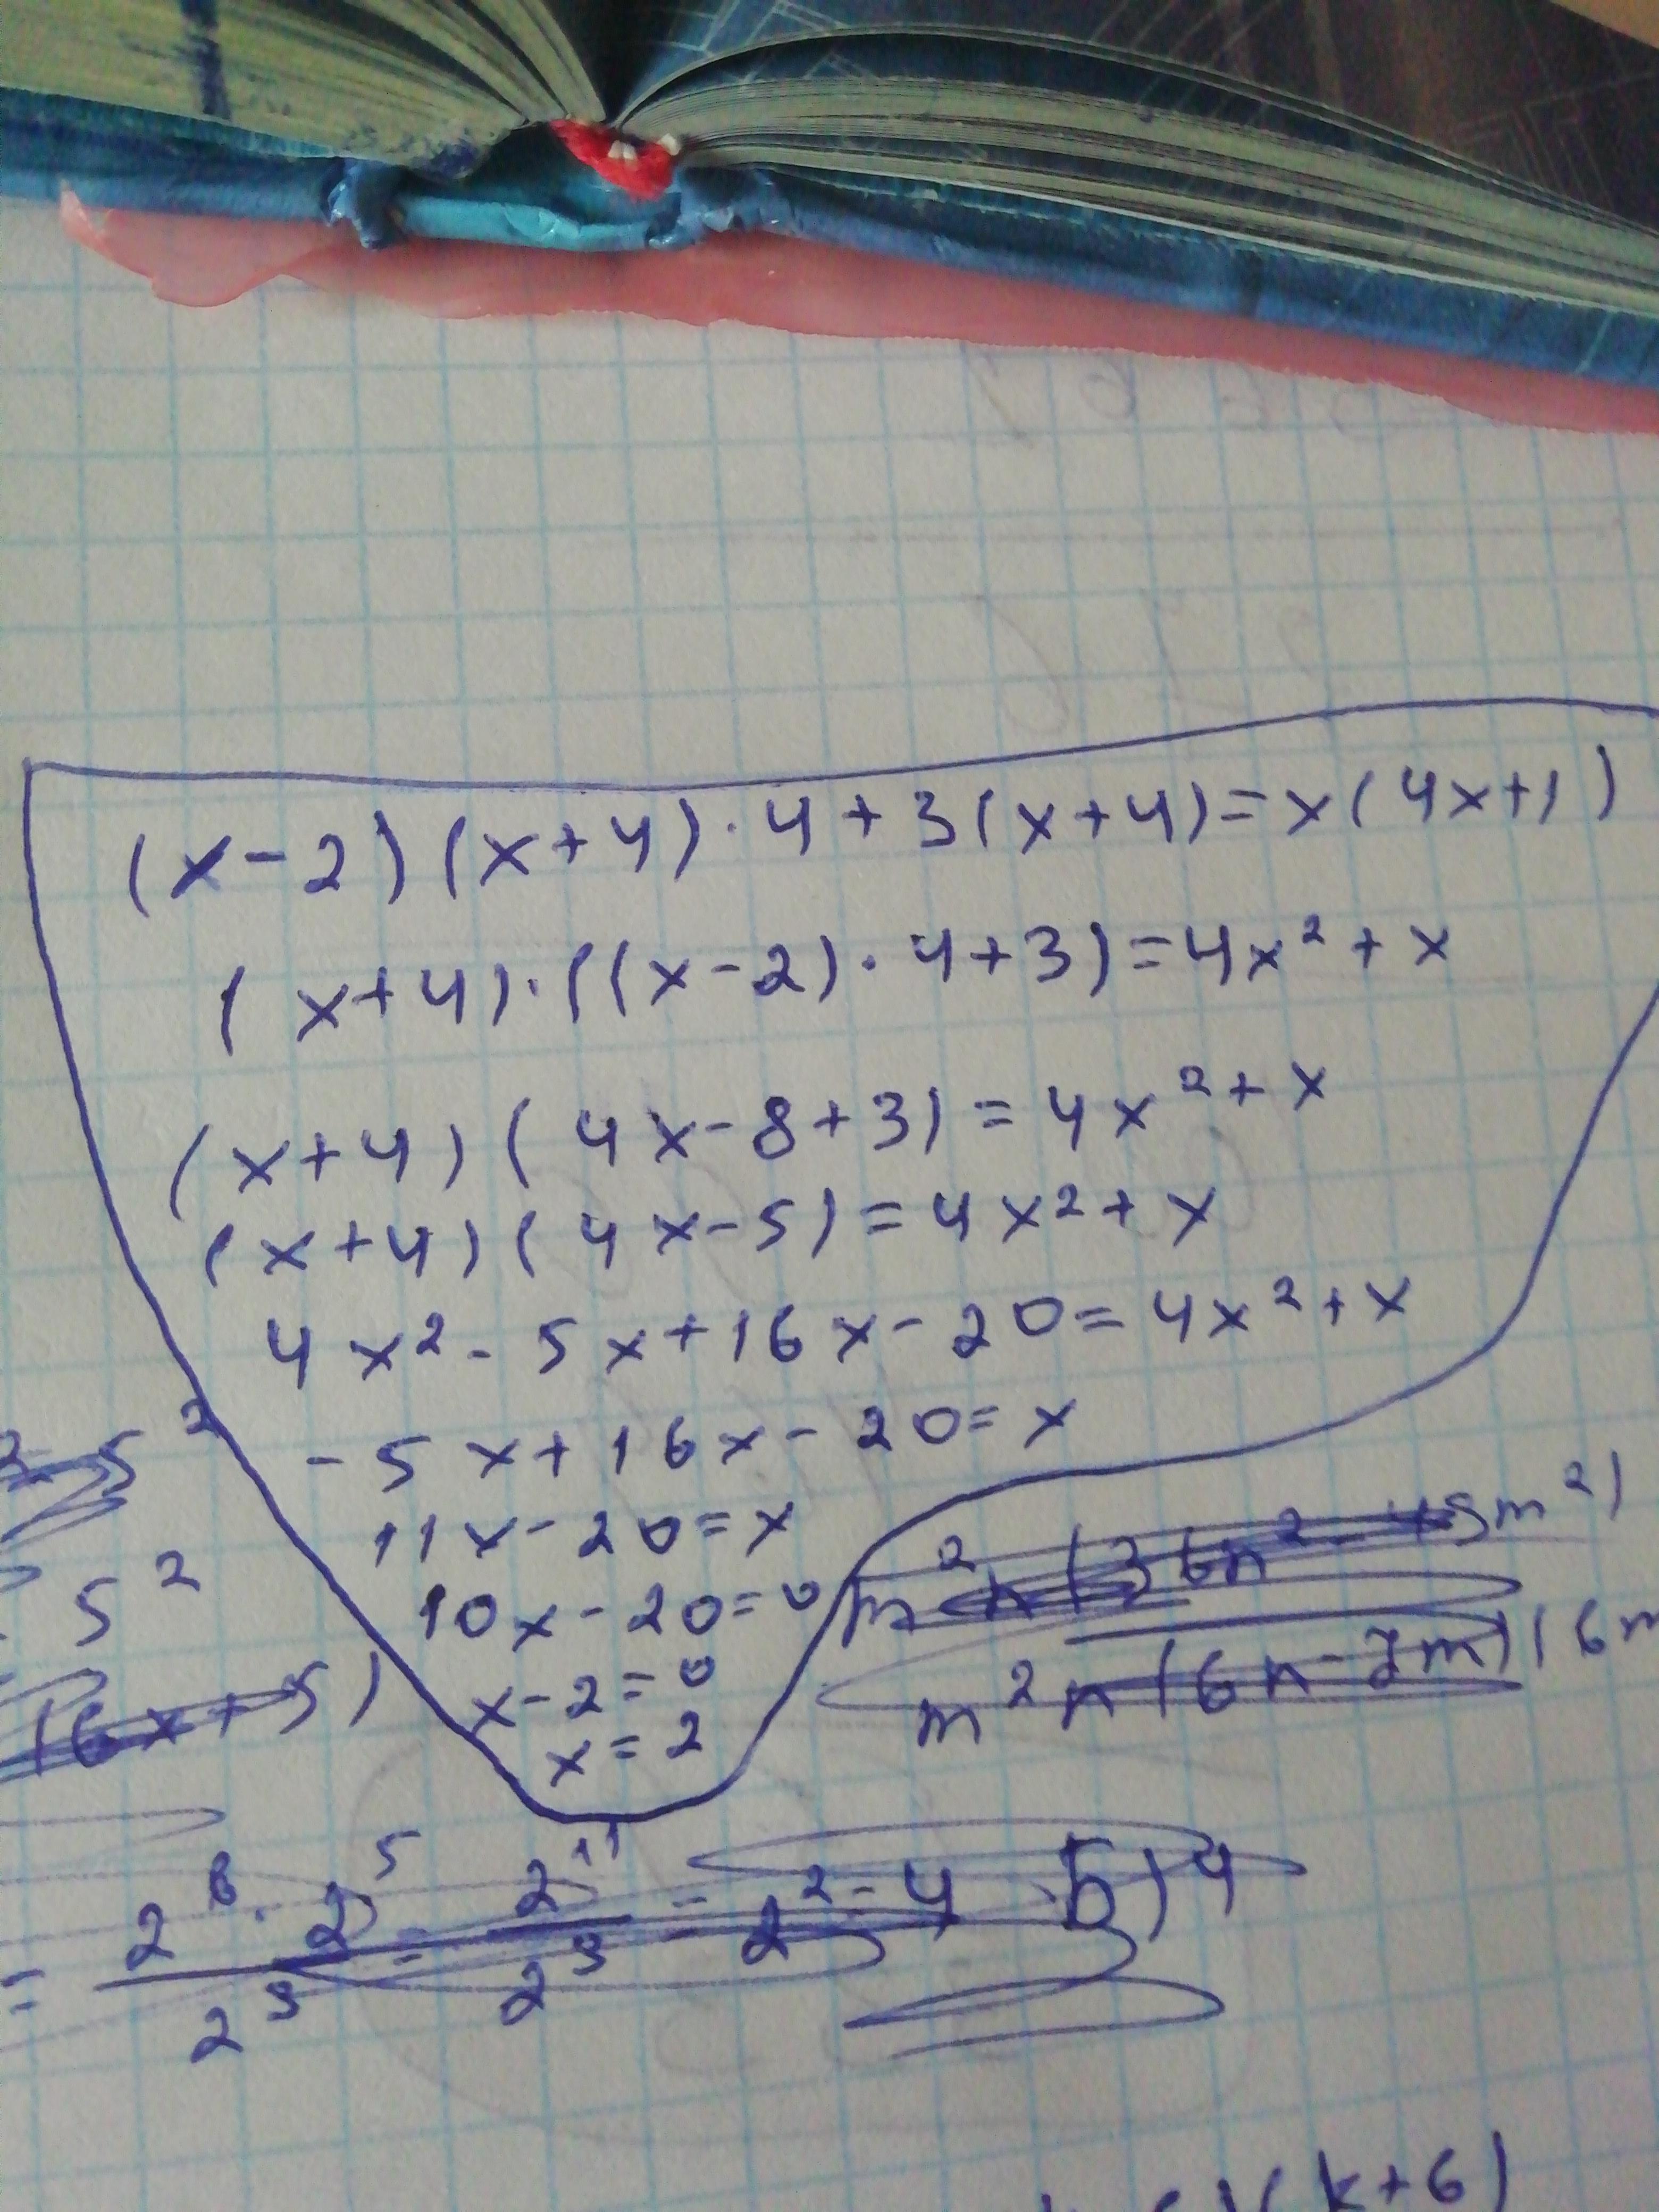 (x-2)(x+4)·4+3(x+4)=x(4x+1)
(x+4)·((x-2)·4+3)=4x²+x
(x+4)(4x-8+3)=4x²+x
(x+4)(4x-5)=4x²+x
4x²-5x+16x-20=4x²+x
-5x+16x-20=x
11x-20=x
10x-20=0
x-2=0
x=2
5²
5²
(6x+5)
m²n(6n-7m)(6m
= 2⁶·2⁵/2⁹ = 2¹¹/2⁹ = 2² = 4 Б) 4
(k+6)